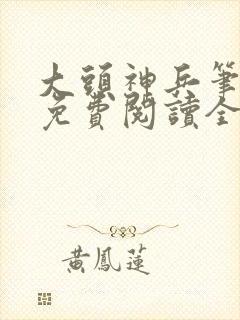 大頭神兵筆
免費閱讀全
黃鳳蓮